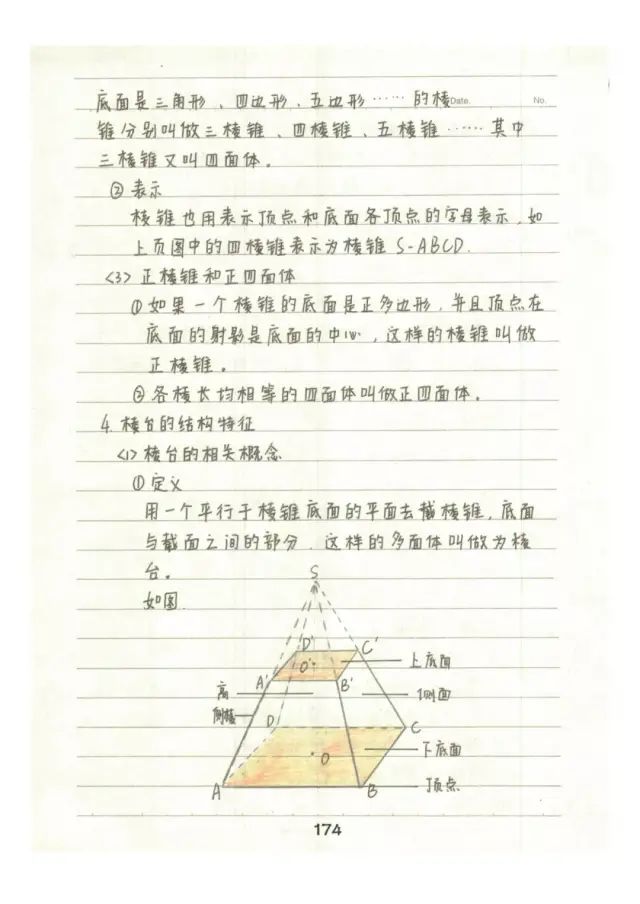 底面是三角形、四边形、五边形……的棱
Date.
No.
锥分别叫做三棱锥、四棱锥、五棱锥……其中
三棱锥又叫四面体。
②表示
棱锥也用表示顶点和底面各顶点的字母表示,如
上页图中的四棱锥表示为棱锥S-ABCD.
<3>正棱锥和正四面体
①如果一个棱锥的底面是正多边形,并且顶点在
底面的射影是底面的中心,这样的棱锥叫做
正棱锥。
②各棱长均相等的四面体叫做正四面体。
4.棱台的结构特征
<1>棱台的相关概念
①定义
用一个平行于棱锥底面的平面去截棱锥,底面
与截面之间的部分,这样的多面体叫做为棱
台。
如图.
S
D'
C'
O'
上底面
A'
B'
高
侧面
侧棱
D
C
下底面
O
A
B
顶点
174